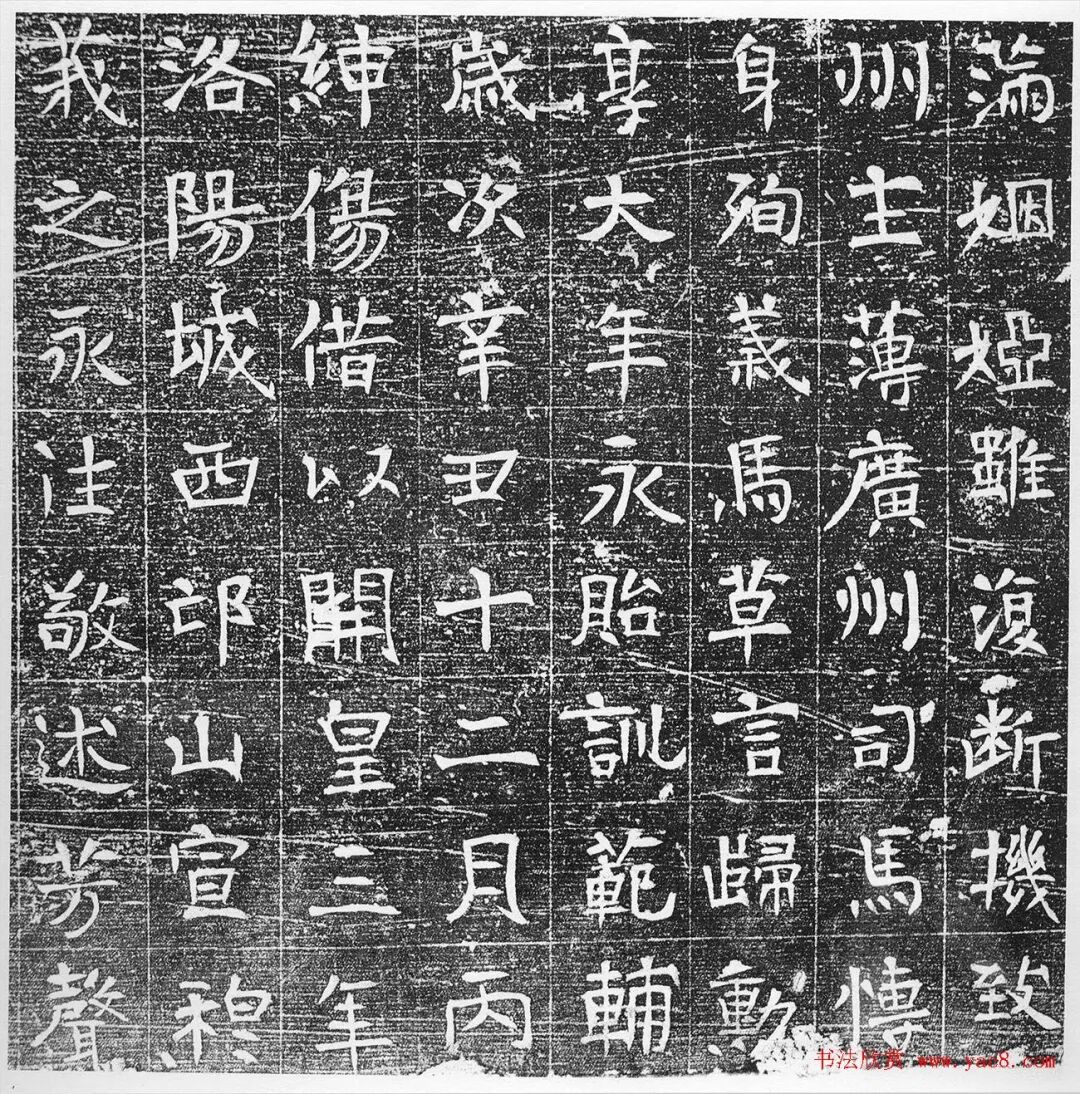 滿姻婭雖復斷機致
州主薄廣州司馬愽
身殉義馬草言歸勳
享大年永貽訓範輔
歲次辛丑十二月丙
紳傷惜以開皇三年
洛陽城西邙山宣穆
義之永往敬述芳聲
书法欣赏 www.yac8.com